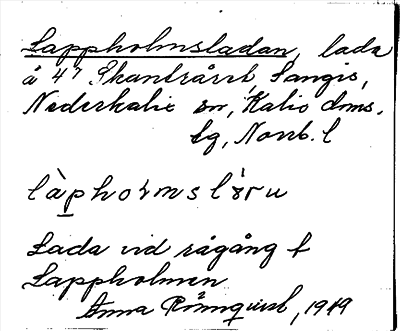 Lappholmsladan, lada
å 47 Skantsåret, Sangis,
Nederkalix sn, Kalix dms.
lg, Norrb. l
Lada vid rågång t
Lappholmen
Anna Rönnquist, 1949